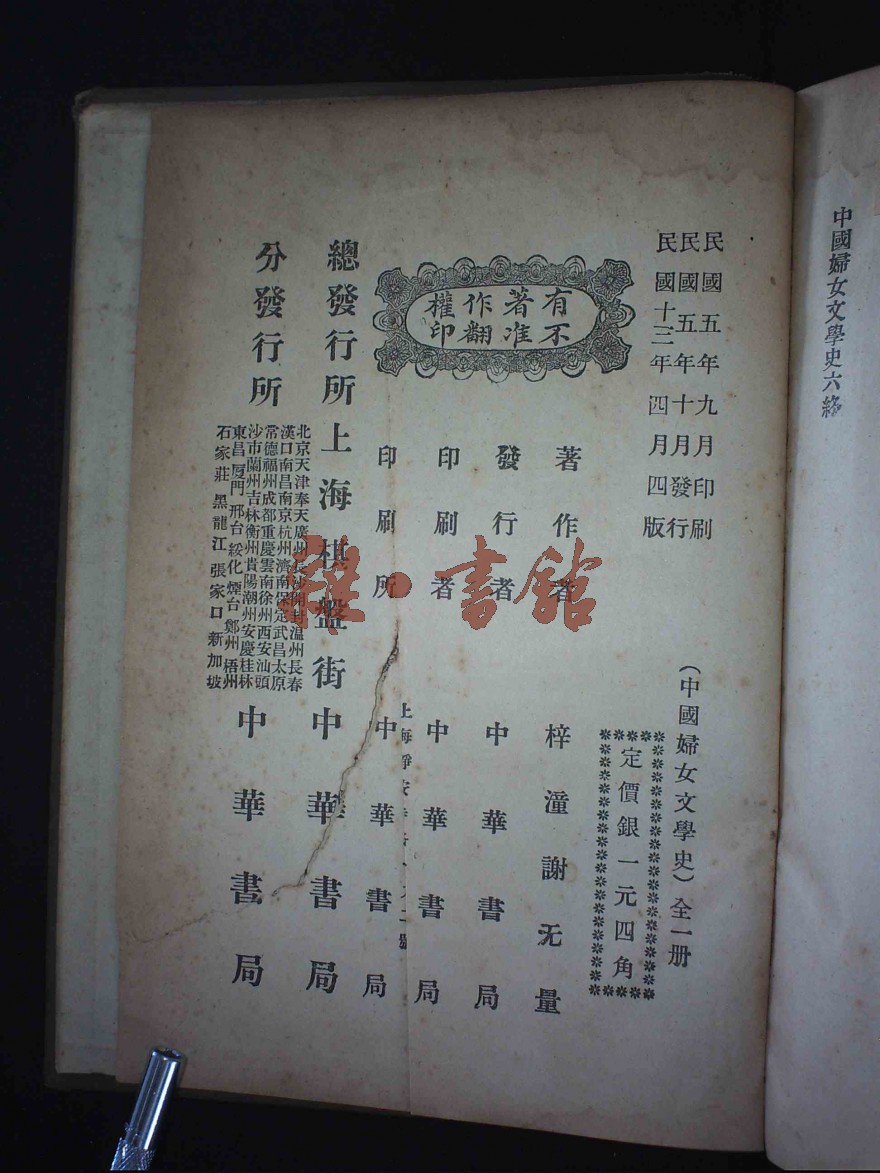 中國婦女文學史六終
民國五年九月印刷
民國五年十月發行
民國十三年四月四版
(中國婦女文學史)全一册
定價銀一元四角
有著作權
不准翻印
著作者 梓潼謝无量
發行者 中華書局
印刷者 中華書局
上海靜安
印刷所 中華書局
總發行所 上海棋盤街 中華書局
分發行所
北京天津奉天廣州長沙開封温州長春
漢口南昌南京杭州濟南保定武昌太原
常德福州成都重慶雲南徐州西安汕頭
沙市蘭州吉林衡州貴陽潮州安慶桂林
東昌厦門邢台綏化煙台鄭州梧州
石家莊黑龍江張家口新加坡
中華書局
雜·書館